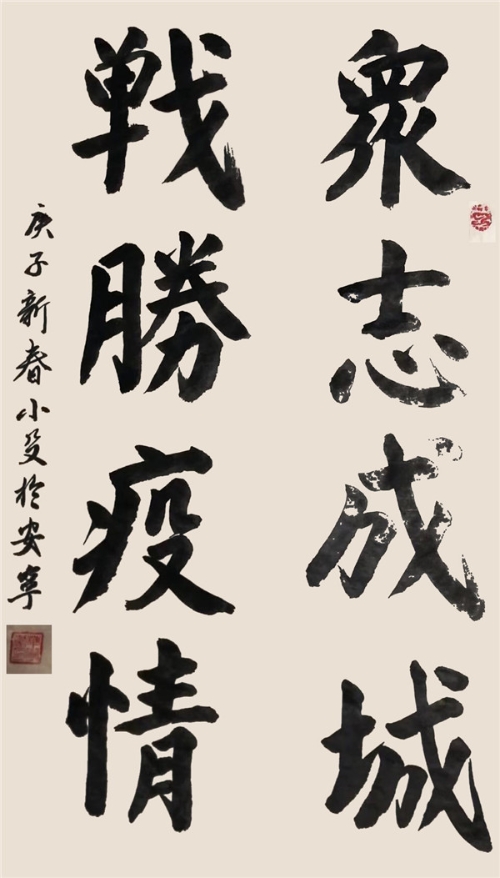 眾志成城
戦勝疫情
庚子新春小旻於安寧